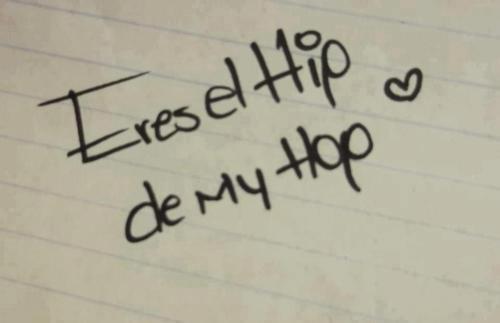 Eres el Hip
de My Hop